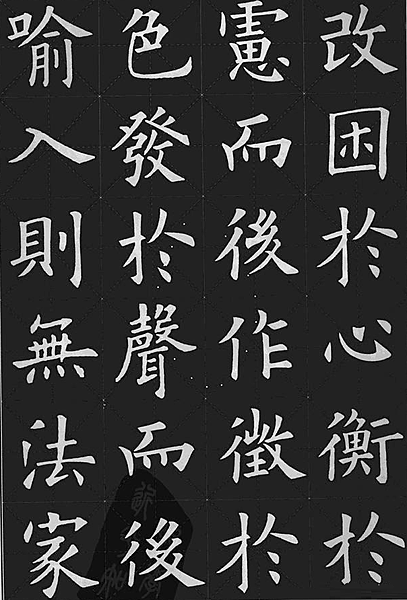 改困於心衡於
慮而後作徵於
色發於聲而後
喻入則無法家